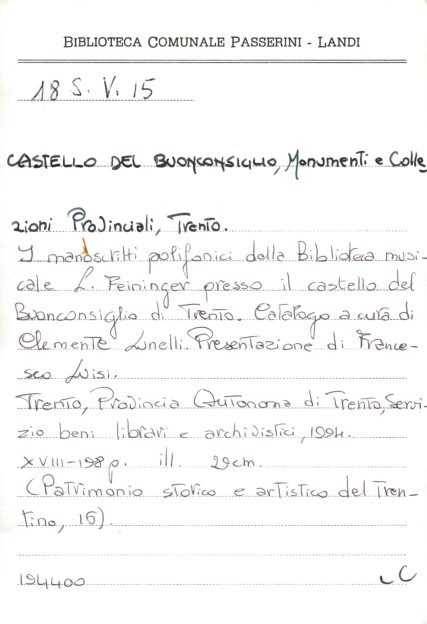 BIBLIOTECA COMUNALE PASSERINI - LANDI
18 S. V. 15
CASTELLO DEL BUONCONSIGLIO, Monumenti e Colle
zioni Provinciali, Trento.
I manoscritti polifonici della Biblioteca musi-
cale L. Feininger presso il castello del
Buonconsiglio di Trento. Catalogo a cura di
Clemente Lunelli. Presentazione di France-
sco Luisi.
Trento, Provincia Autonoma di Trento, Servi-
zio beni librari e archivistici, 1994.
XVIII-198 p. ill. 29cm.
(Patrimonio storico e artistico del Tren-
tino, 16).
194400